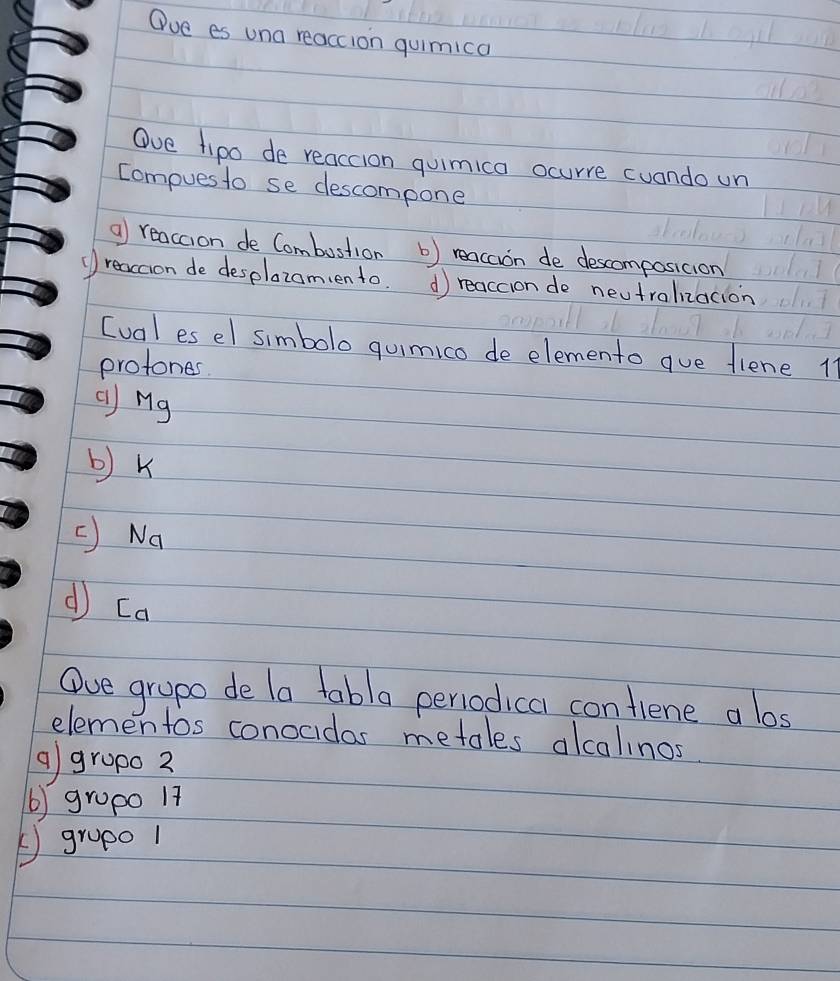 Que es una reaccion quimica
Que tipo de reaccion quimica ocurre cuando un
Compuesto se descompone
a) reaccion de Combustion b) reacción de descomposicion
c) reaccion de desplazamiento. d) reaccion de neutralizacion
Cual es el simbolo quimico de elemento que tiene 11
protones.
a) Mg
b) K
c) Na
d) Ca
Que grupo de la tabla periodica contiene a los
elementos conocidos metales alcalinos.
a) grupo 2
b) grupo 17
c) grupo 1